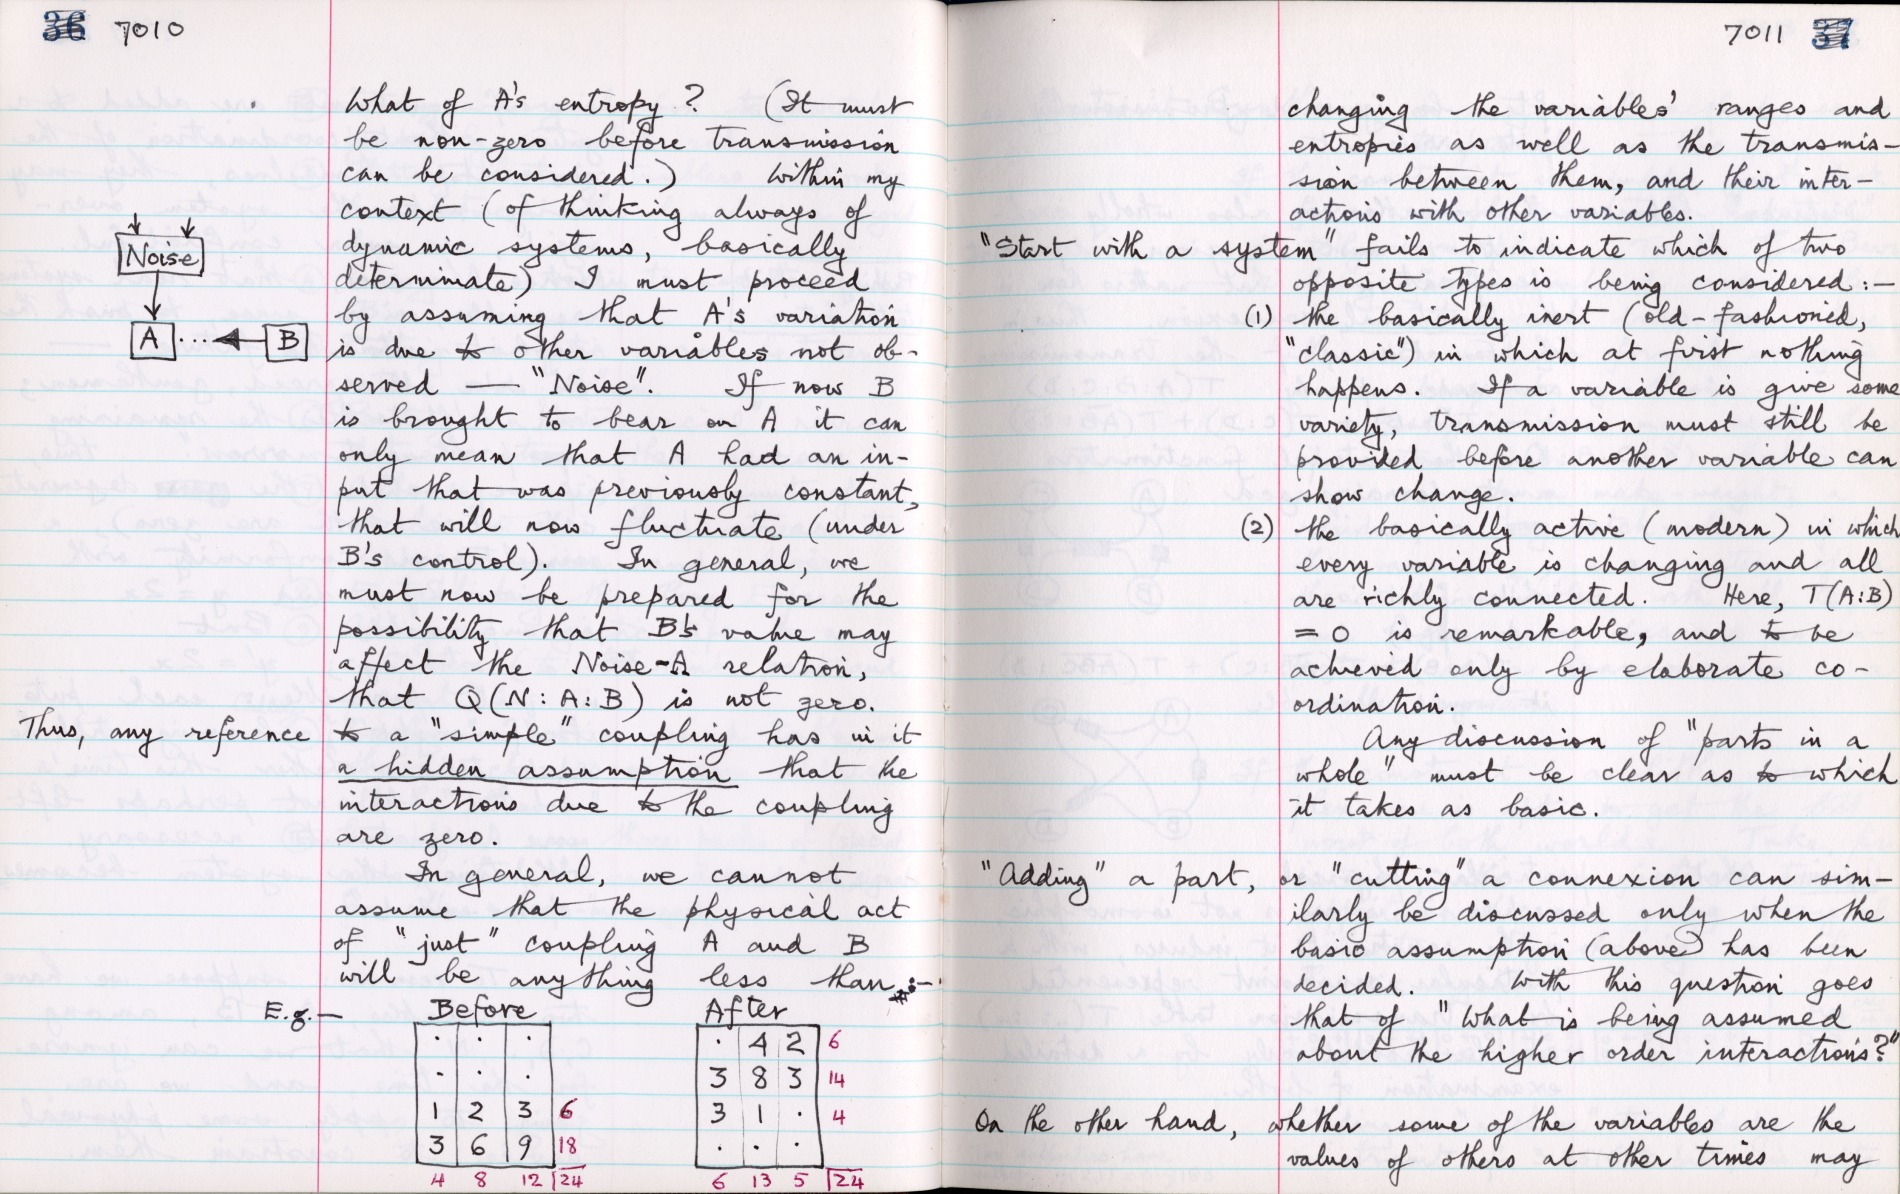 36 7010
What of A's entropy? (It must
be non-zero before transmission
can be considered.) Within my
context (of thinking always of
dynamic systems, basically
determinate) I must proceed
by assuming that A's variation
is due to other variables not ob-
served — "Noise". If now B
is brought to bear on A it can
only mean that A had an in-
put that was previously constant,
that will now fluctuate (under
B's control). In general, we
must now be prepared for the
possibility that B's value may
affect the Noise-A relation,
that Q(N:A:B) is not zero.
Noise
A ... B
Thus, any reference to a "simple" coupling has in it
a hidden assumption that the
interactions due to the coupling
are zero.
In general, we cannot
assume that the physical act
of "just" coupling A and B
will be anything less than :-
E.g. — Before After
. . . . 4 2 6
. . . 3 8 3 14
1 2 3 6 3 1 . 4
3 6 9 18 . . .
4 8 12 24 6 13 5 24
7011 37
changing the variables' ranges and
entropies as well as the transmis-
sion between them, and their inter-
actions with other variables.
"Start with a system" fails to indicate which of two
opposite types is being considered:—
(1) the basically inert (old-fashioned,
"classic") in which at first nothing
happens. If a variable is give some
variety, transmission must still be
provided before another variable can
show change.
(2) the basically active (modern) in which
every variable is changing and all
are richly connected. Here, T(A:B)
= 0 is remarkable, and to be
achieved only by elaborate co-
ordination.
Any discussion of "parts in a
whole" must be clear as to which
it takes as basic.
"Adding" a part, or "cutting" a connexion can sim-
ilarly be discussed only when the
basic assumption (above) has been
decided. With this question goes
that of "What is being assumed
about the higher order interactions?"
On the other hand, whether some of the variables are the
values of others at other times may